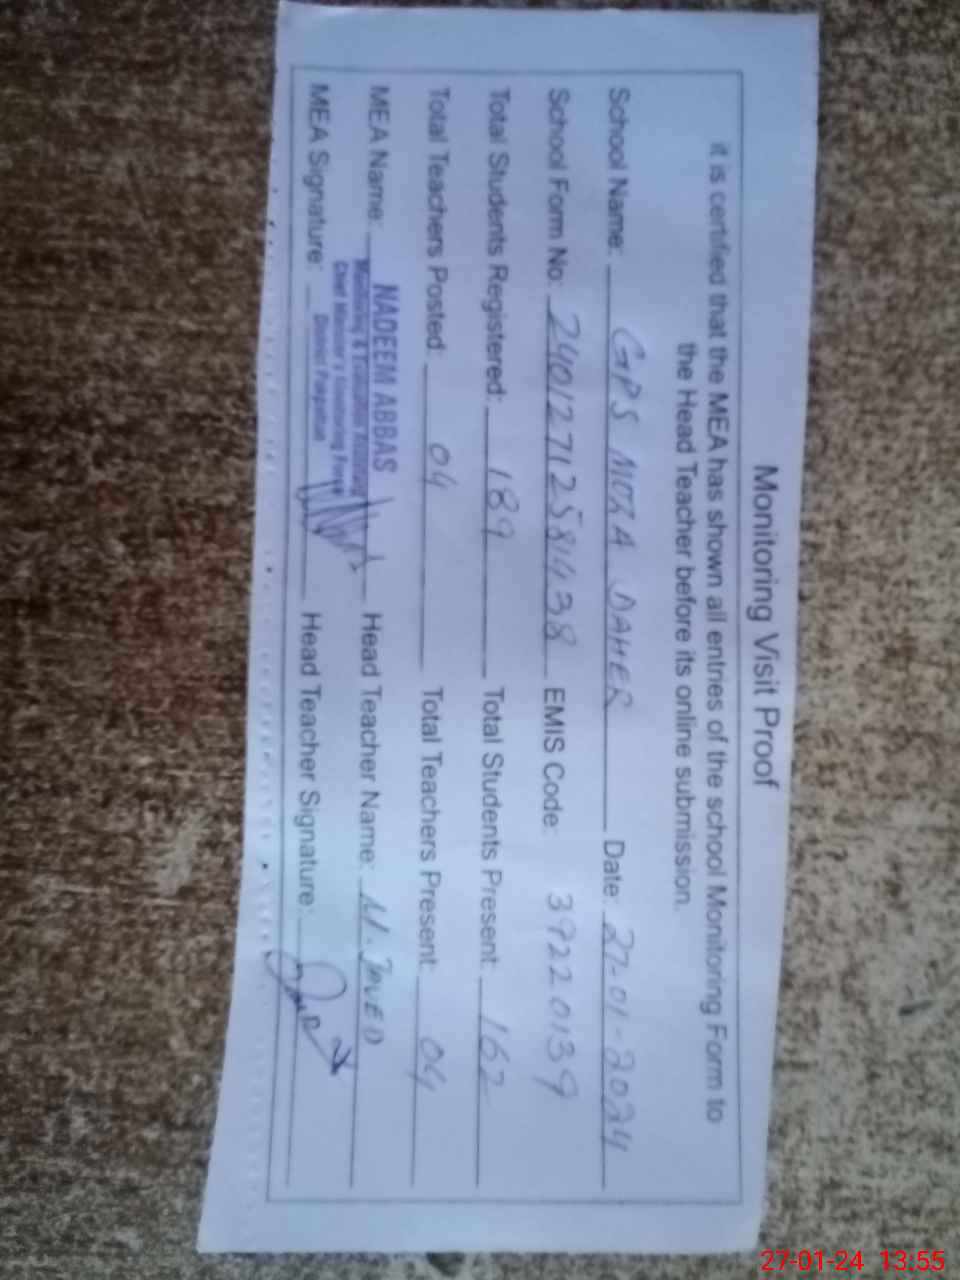 Monitoring Visit Proof
it is certified that the MEA has shown all entries of the school Monitoring Form to
the Head Teacher before its online submission.
School Name: GPS MOZA DAHER Date: 27-01-2024
School Form No: 24012712581438 EMIS Code: 39220139
Total Students Registered: 189 Total Students Present: 162
Total Teachers Posted: 04 Total Teachers Present: 04
MEA Name: NADEEM ABBAS Head Teacher Name: M. JAVED
Monitoring & Evaluation Assistant
Chief Minister's Monitoring Force
District Pakpattan
MEA Signature: Head Teacher Signature:
27-01-24 13:55